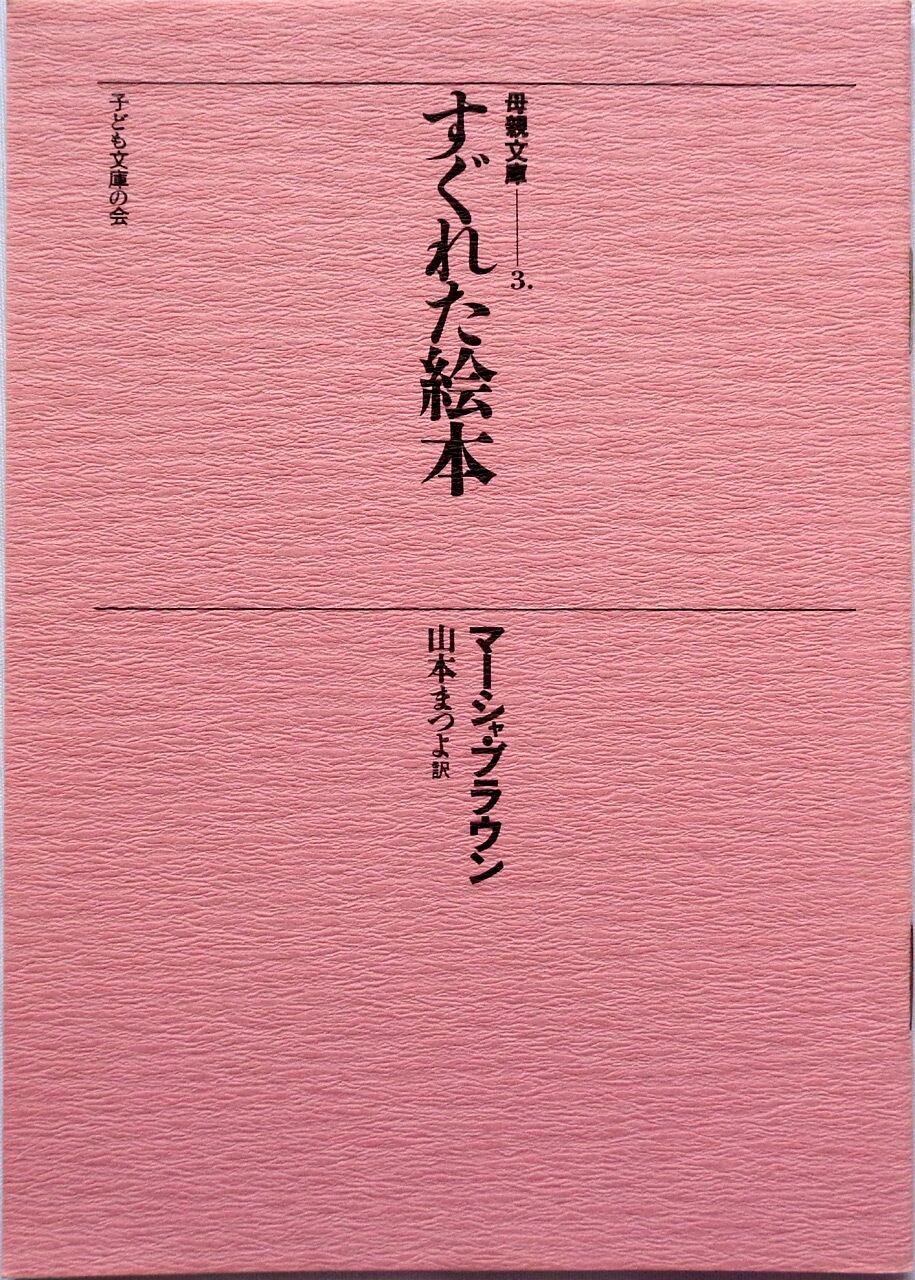 母親文庫――3.
すぐれた絵本
子ども文庫の会
マーシャ・ブラウン
山本まつよ訳